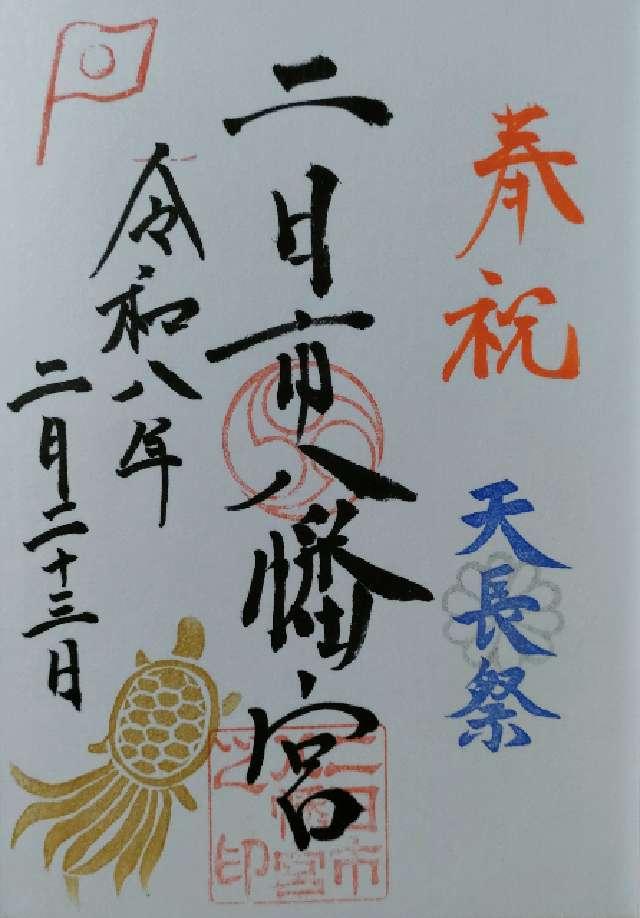 奉祝
天長祭
二日市八幡宮
二日市
八幡宮
之印
令和八年
二月二十三日